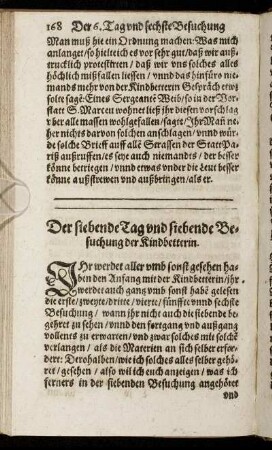 168 Der 6. Tag vnd sechste Besuchung
Man muß hie ein Ordnung machen: Was mich
anlanget/ so hielte ich es vor sehr gut/ daß wir auß-
trucklich protestirten/ daß wir vns solches alles
höchlich mißfallen liessen/ vnnd das hinfüro nie-
mands mehr von der Kindbetterin Gespräch etwz
solte sagē: Eines Sergeante Weib/ so in der Vor-
statt S. Marceu wohnet ließ jhr diesen vorschlag
vber alle massen wohlgefallen/ sagte/ Jhr Man ne-
her nichts darvon solchen anschlagen/ vnnd wür-
de solche Brieff auff allē Strassen der Statt Pa-
riß außruffen/ es seye auch niemandes/ der besser
könne betriegen/ vnnd etwas vnder die Leut besser
könne außstrewen vnd außbringen/ als er.
Der siebende Tag vnd siebende Be-
suchung der Kindbetterin.
JHr werdet aller vmb sonst gesehen ha-
ben den Anfang mit der Kindbetterin/ jhr
werdet auch gantz vmb sonst habē gelesen
die erste/ zweyte/ dritte/ vierte/ fünffte vnnd sechste
Besuchung/ wann jhr nicht auch die siebende be-
gehret zu sehen/ vnnd den fortgang vnd außgang
vollents zu erwarten/ vnd zwar solches mit solchē
verlangen/ als die Materien an sich selber erfor-
dert: Derohalben/ wie ich solches alles selber gehö-
ret/ gesehen/ also wil ich euch anzeigen/ was ich
ferners in der siebenden Besuchung angehöret
vnd